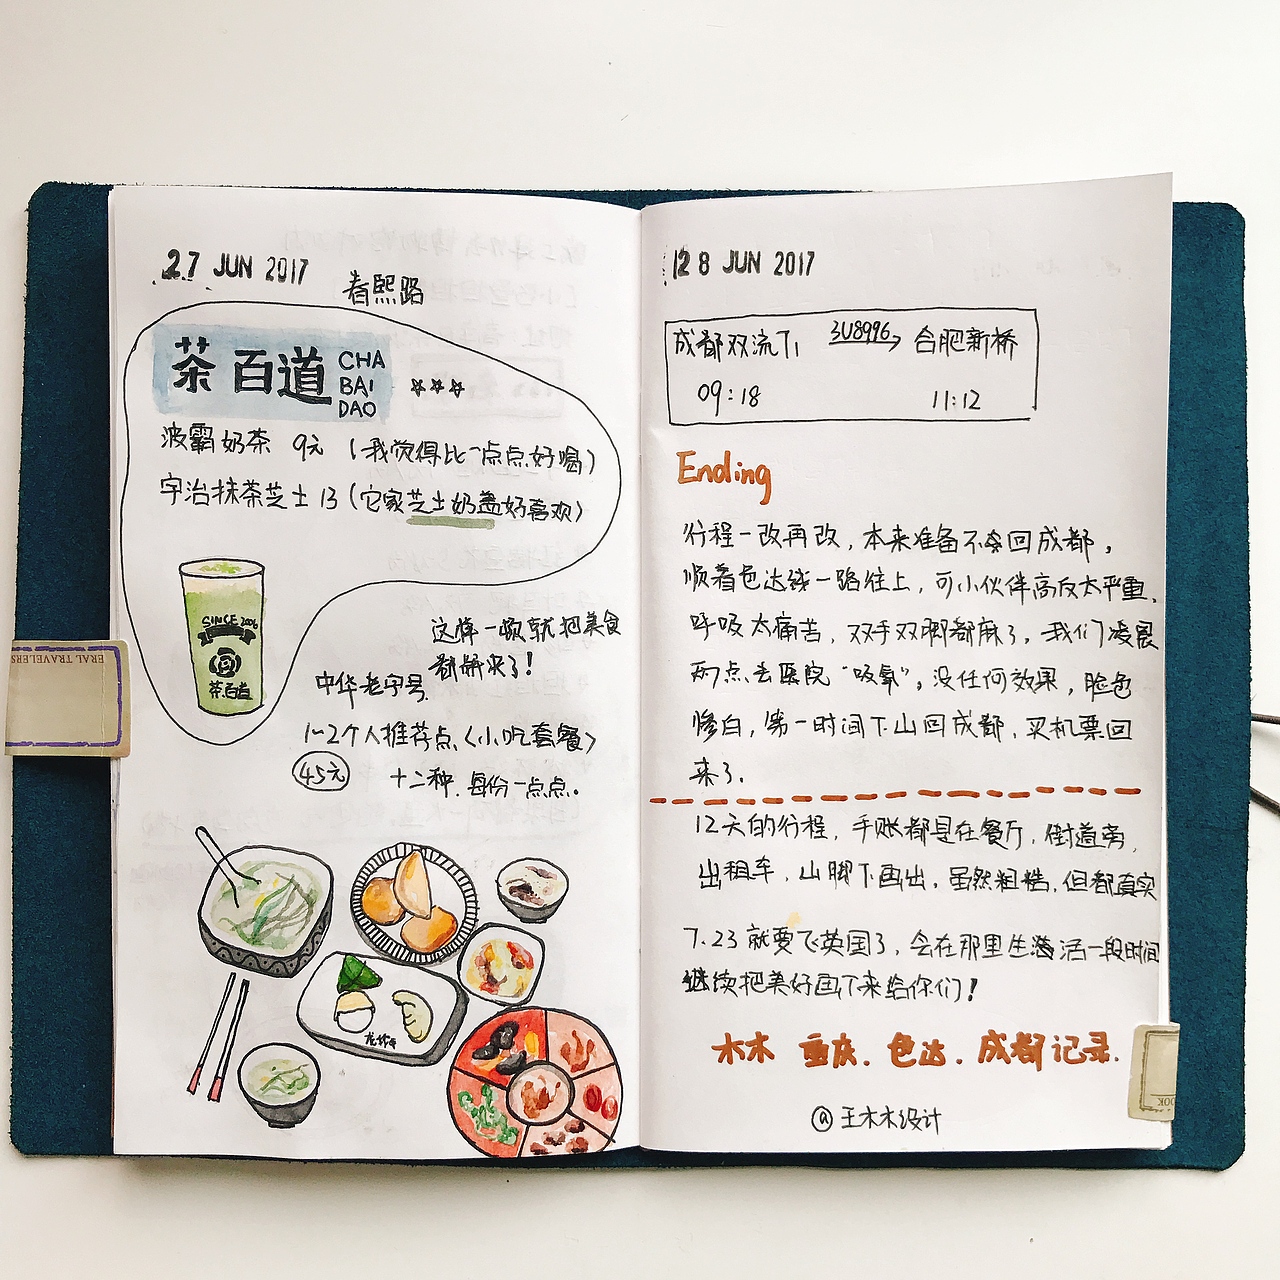 27 JUN 2017
春熙路
茶百道 CHA BAI DAO
波霸奶茶 9元 (我觉得比一点点好喝)
宇治抹茶芝士 13 (它家芝士奶盖好喜欢)
SINCE 2006
茶百道
这样一顿就把美食
都解决了!
中华老字号
1~2个人推荐点<小吃套餐>
45元 十二种.每份一点点。
龙抄手
ERAL TRAVELERS
28 JUN 2017
成都双流T1 3U8996 合肥新桥
09:18 11:12
Ending
行程一改再改,本来准备不会回成都,
顺着色达线一路往上,可小伙伴高反太严重,
呼吸太痛苦,双手双脚都麻了,我们凌晨
两点去医院“吸氧”。没任何效果,脸色
惨白,第一时间下山回成都,买机票回
来了.
12天的行程,手账都是在餐厅,街道旁,
出租车,山脚下画出,虽然粗糙,但都真实
7.23 就要飞英国了,会在那里生活一段时间
继续把美好画下来给你们!
木木 重庆.色达.成都记录.
@王木木设计
OOK